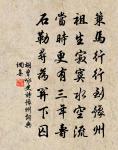 策馬行行到豫州
祖生寂寞水空流
當時更有三年壽
石勒尋為下囚
胡曾詠史詩豫州